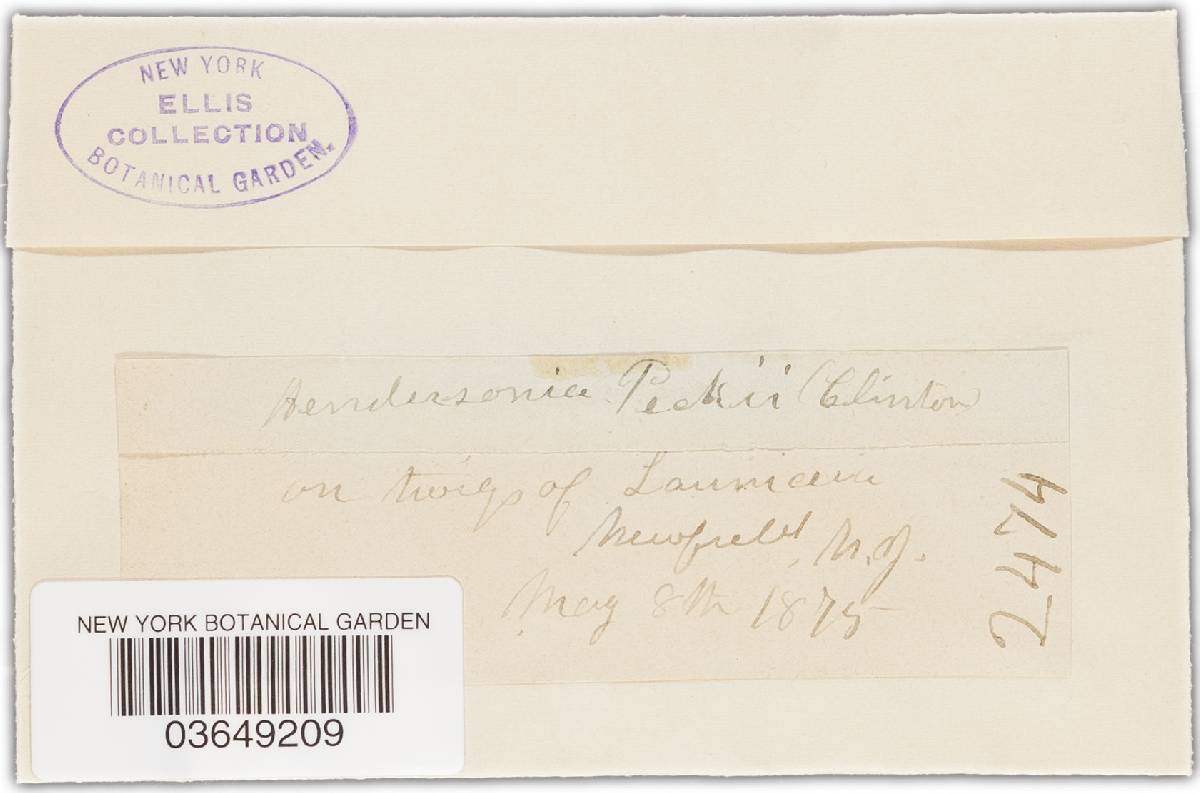 NEW YORK
ELLIS
COLLECTION
BOTANICAL GARDEN.
Hendersonia Peckii Clinton
on twigs of
Newfield, N.J.
May 8th 1875
2474
NEW YORK BOTANICAL GARDEN
03649209